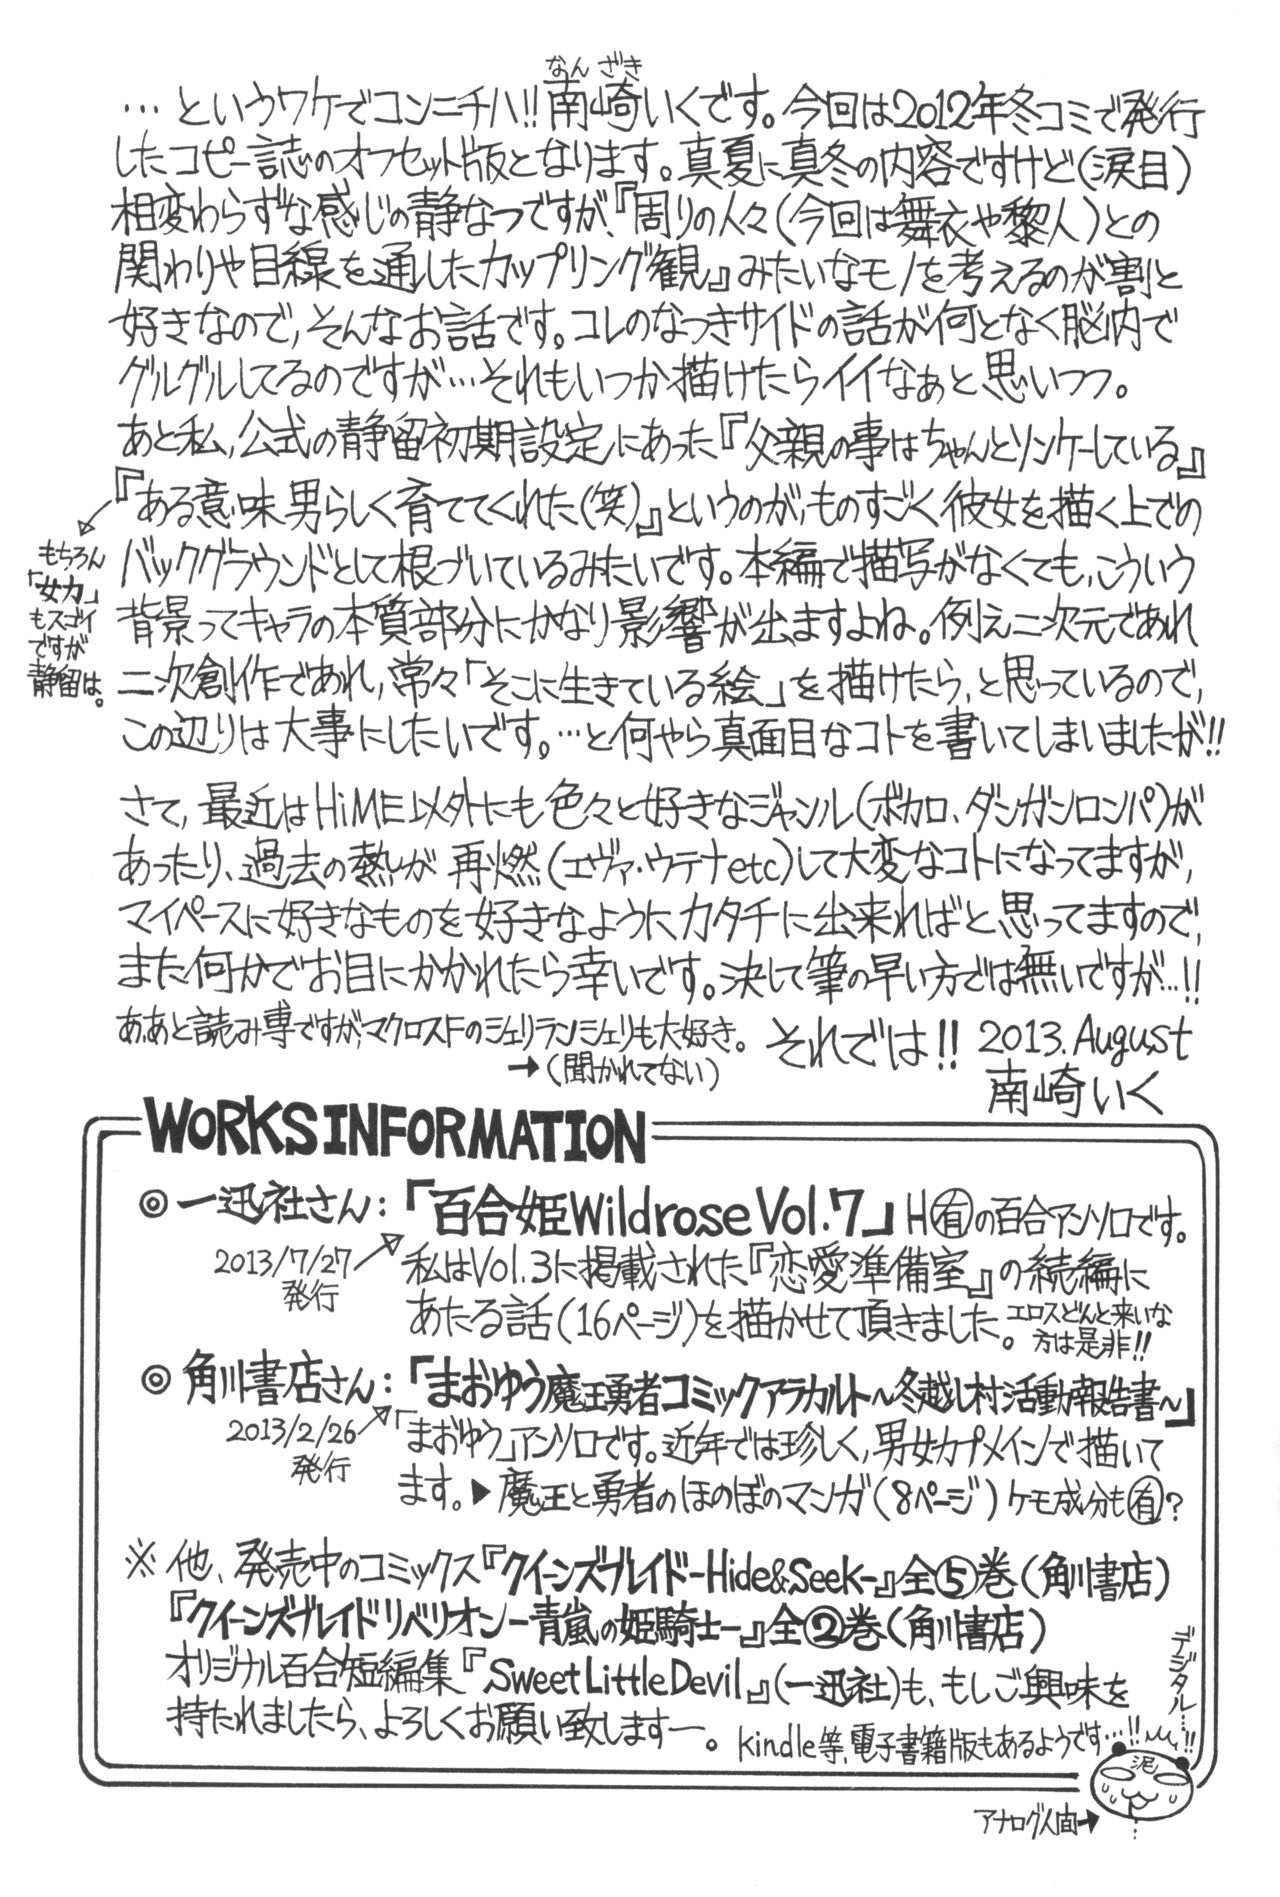 なんざき
…というワケでコンニチハ!!南崎いくです。今回は2012年冬コミで発行
したコピー誌のオフセット版となります。真夏に真冬の内容ですけど(涙目)
相変わらずな感じの静なつですが、『周りの人々(今回は舞衣や黎人)との
関わりや目線を通したカップリング観』みたいなモノを考えるのが割と
好きなので、そんなお話です。コレのなつきサイドの話が何となく脳内で
グルグルしてるのですが…それもいつか描けたらイイなぁと思いつつ。
あと私、公式の静留初期設定にあった『父親の事はちゃんとソンケーしている』
『ある意味男らしく育ててくれた(笑)』というのが、ものすごく彼女を描く上での
バックグラウンドとして根づいているみたいです。本編で描写がなくても、こういう
背景ってキャラの本質部分にかなり影響が出ますよね。例え二次元であれ
二次創作であれ、常々「そこに生きている絵」を描けたら、と思っているので、
この辺りは大事にしたいです。…と何やら真面目なコトを書いてしまいましたが!!
もちろん
「女力」
もスゴイ
ですが
静留は。
さて、最近はHiME以外にも色々と好きなジャンル(ボカロ、ダンガンロンパ)が
あったり、過去の熱が再燃(エヴァ・ウテナetc)して大変なコトになってますが、
マイペースに好きなものを好きなようにカタチに出来ればと思ってますので、
また何かでお目にかかれたら幸いです。決して筆の早い方では無いですが…!!
あ、あと読み専ですが、マクロスFのシェリランシェリも大好き。
→(聞かれてない)
それでは!! 2013.August
南崎いく
WORKS INFORMATION
◎一迅社さん:「百合姫Wildrose Vol.7」H㊒の百合アンソロです。
2013/7/27
発行
私はVol.3に掲載された『恋愛準備室』の続編に
あたる話(16ページ)を描かせて頂きました。エロスどんと来いな
方は是非!!
◎角川書店さん:「まおゆう魔王勇者コミックアラカルト〜冬越し村活動報告書〜」
2013/2/26
発行
「まおゆう」アンソロです。近年では珍しく、男女カプメインで描いて
ます。▶魔王と勇者のほのぼのマンガ(8ページ)ケモ成分も㊒?
※他、発売中のコミックス『クイーンズブレイド-Hide&Seek-』全⑤巻(角川書店)
『クイーンズブレイドリベリオン-青嵐の姫騎士-』全②巻(角川書店)
オリジナル百合短編集『Sweet Little Devil』(一迅社)も、もしご興味を
持たれましたら、よろしくお願い致しますー。
kindle等、電子書籍版もあるようです…!!
デジタル…!!
泥
アナログ人間→